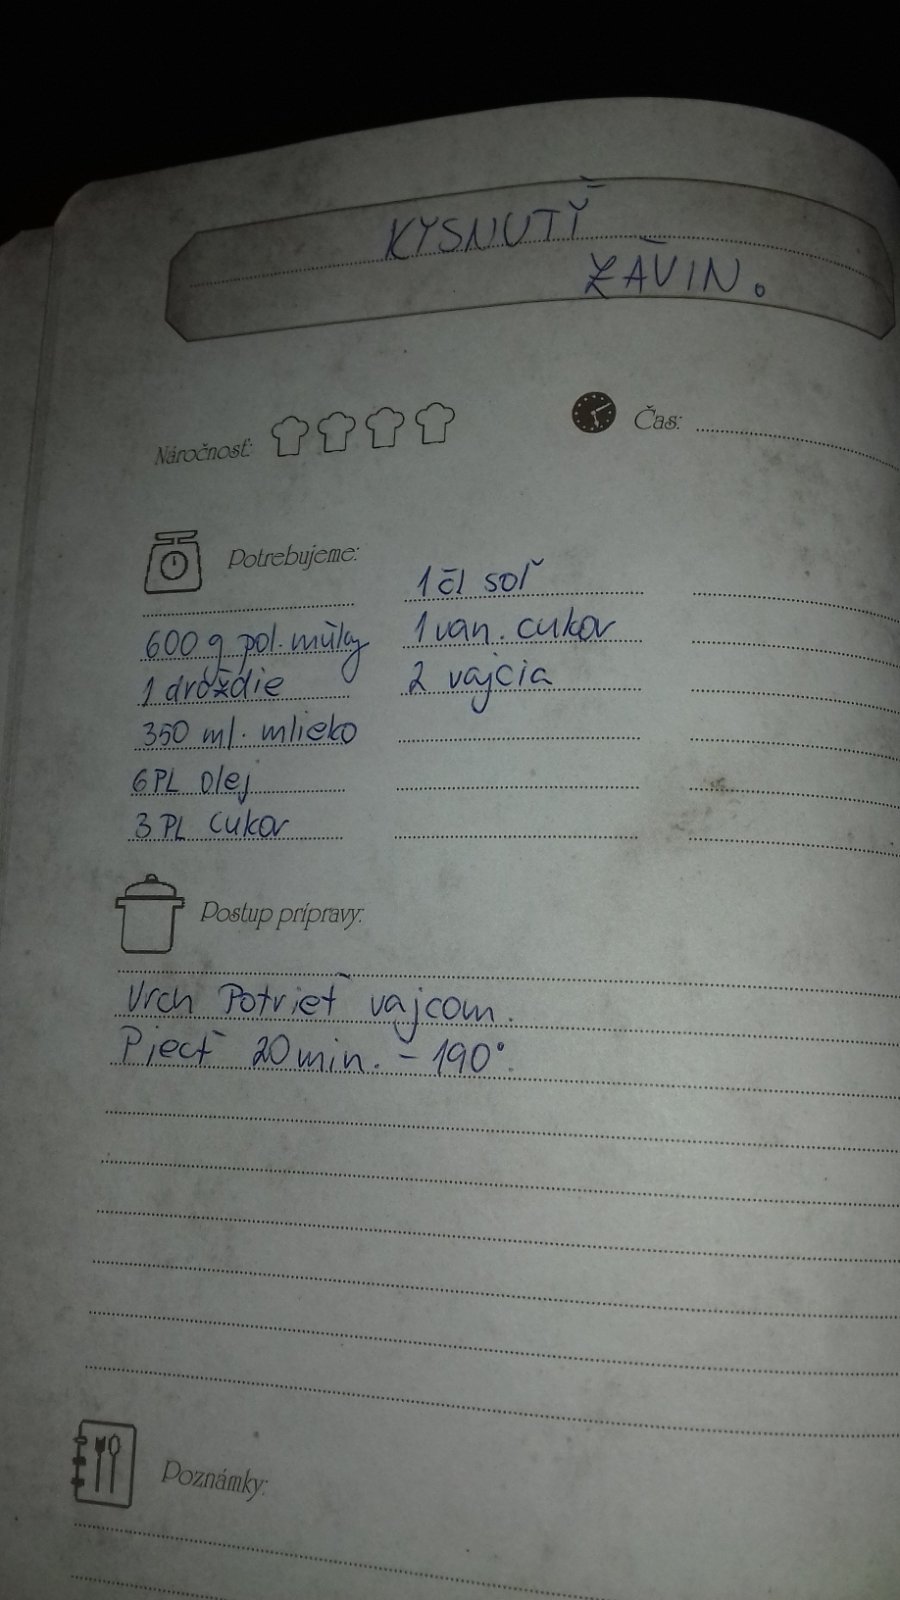 KYSNUTÝ
ZÁVIN.
Náročnosť:
Čas:
Potrebujeme:
600 g pol. múky
1 droždie
350 ml. mlieko
6 PL olej
3 PL cukor
1 čl soľ
1 van. cukor
2 vajcia
Postup prípravy:
Vrch Potrieť vajcom.
Piecť 20 min. - 190°.
Poznámky: